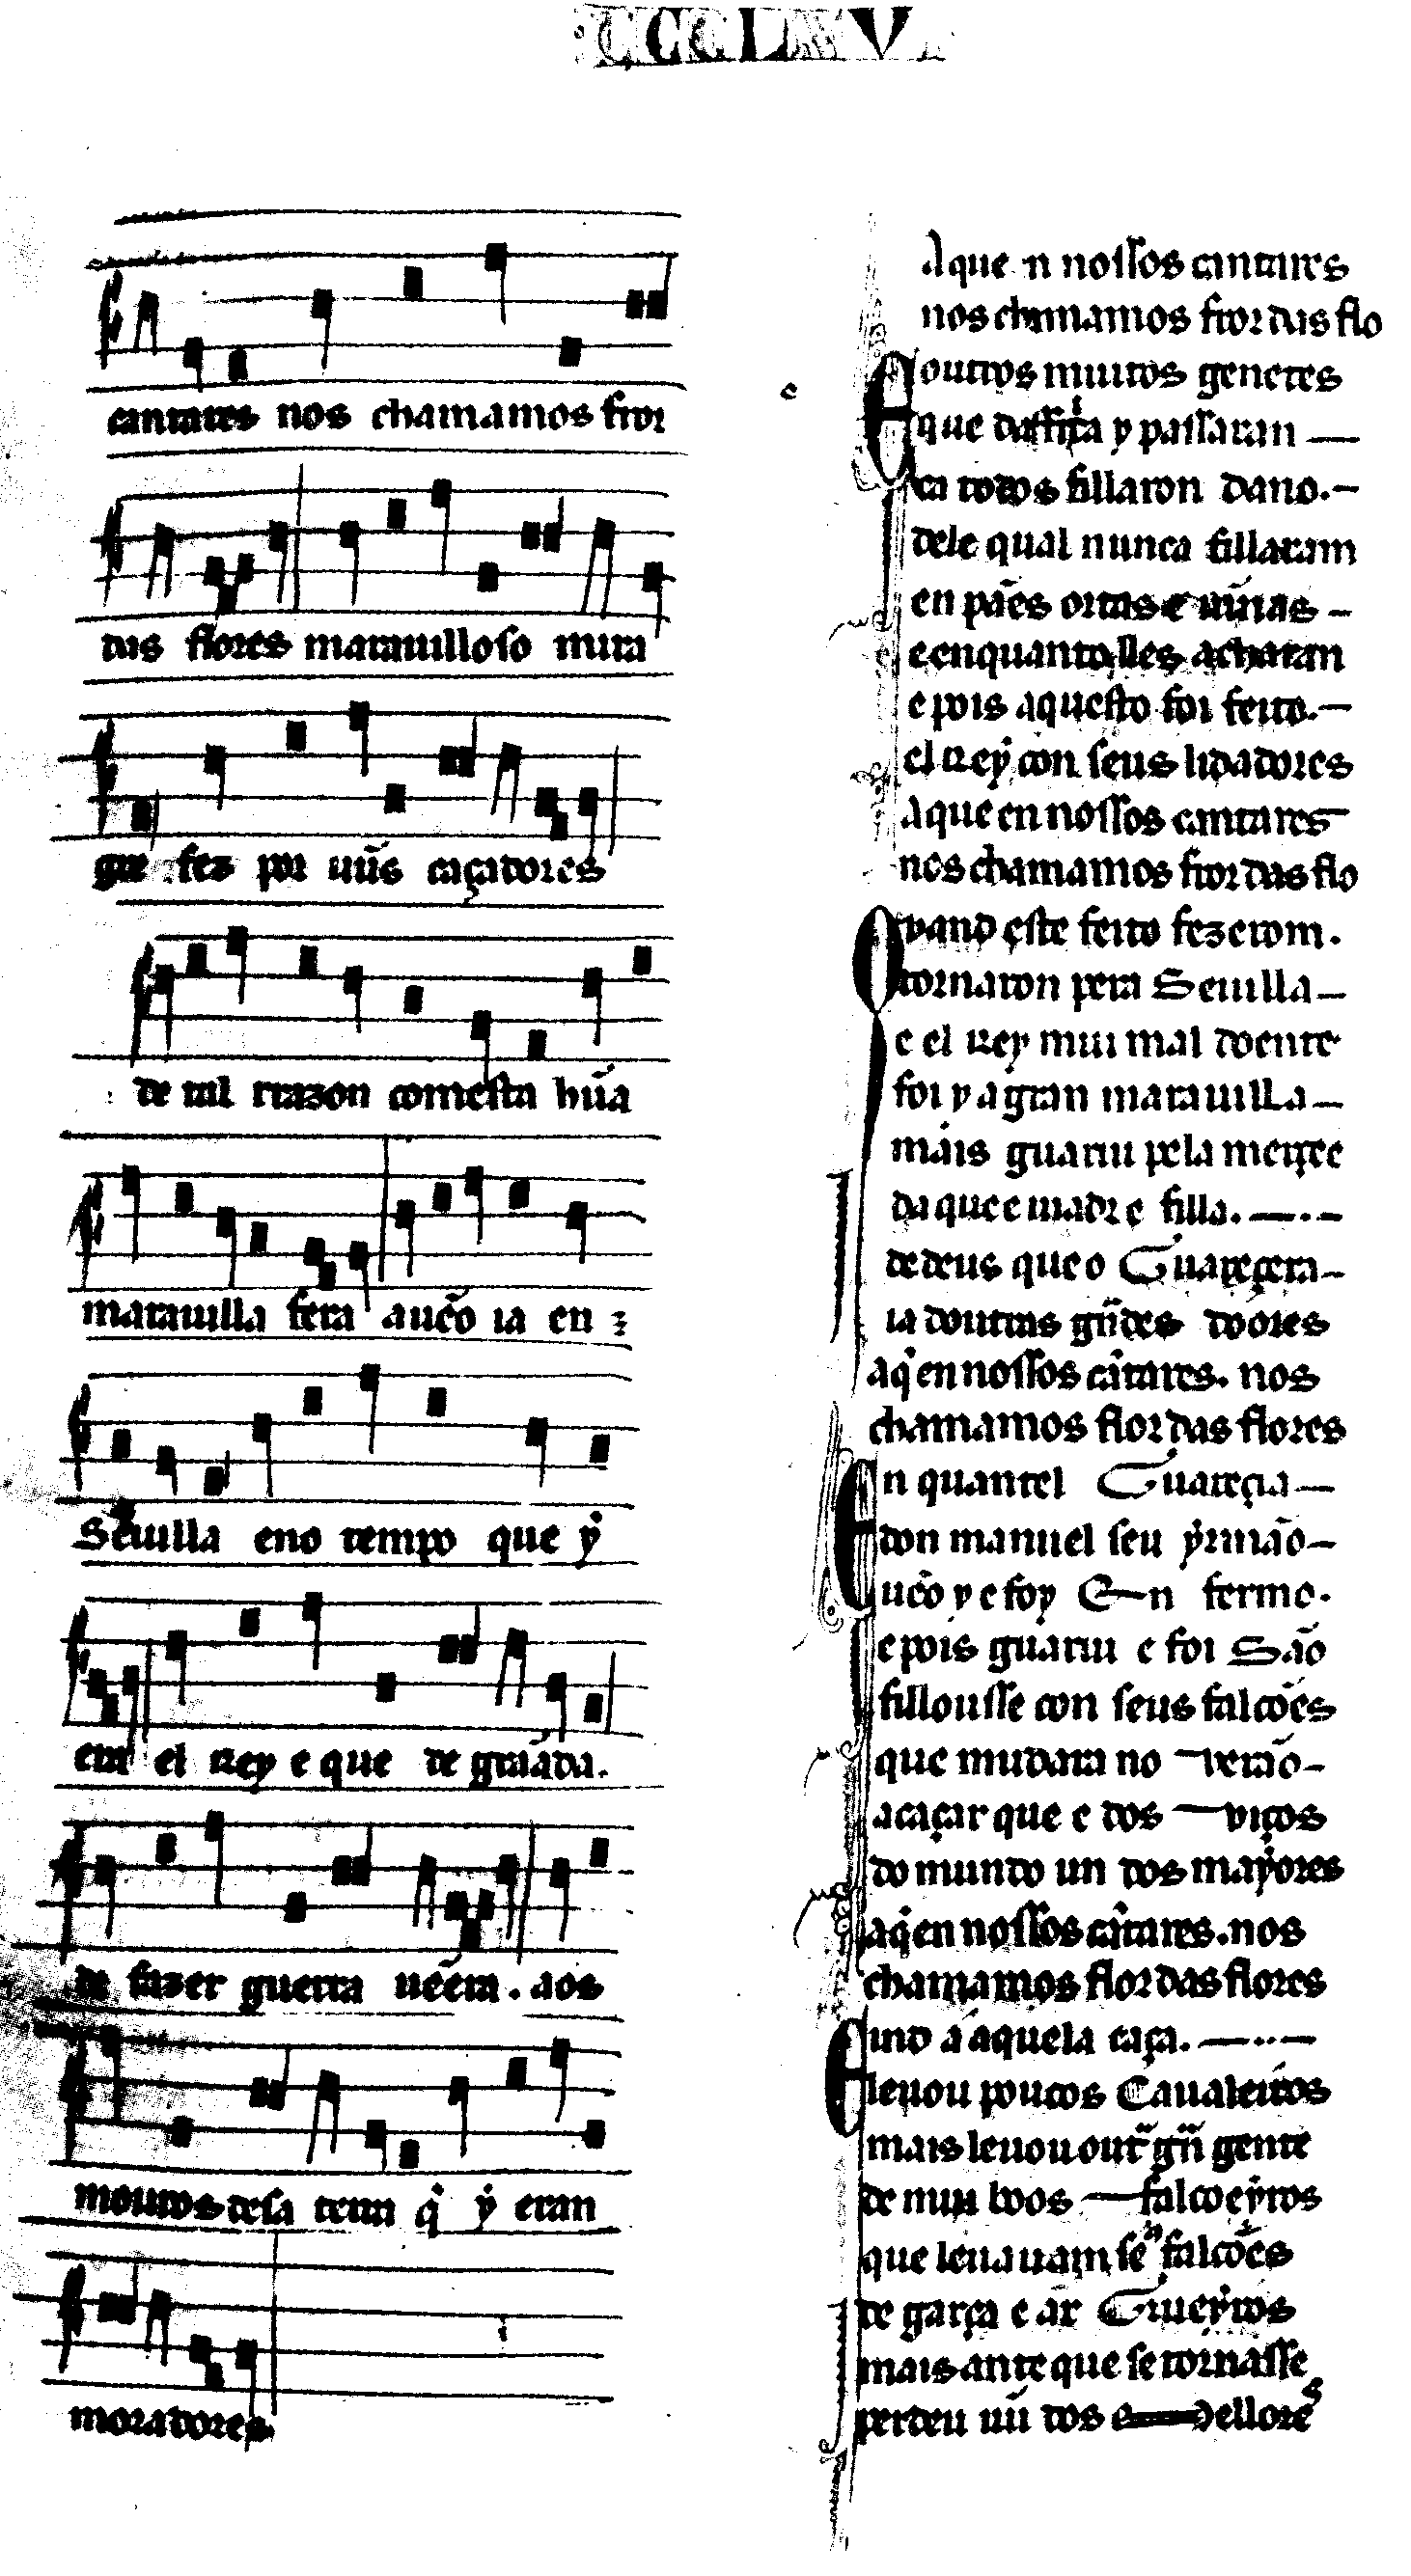 CCCLXV
cantares nos chamamos fror
das flores marauilloso mira
gre fez por uũs caçadores
de tal rrazon comesta hũa
marauilla fera auẽo ia en
Seuilla eno tempo que ẏ
era el Rey e que de grãada.
de fazer guerra uẽera . aos
mouros desa terra q̇ ẏ eran
moradores
A que n nossos cantares
nos chamamos fror das flo
E outros muitos genetes
que daffrica y passaran —
ca todos fillaron dano.—
dele qual nunca fillaram
en pães ortas e uĩnas —
e enquanto lles acharan
e pois aquesto foi feito.—
el Rey con seus lidadores
a que en nossos cantares
nos chamamos fror das flo
Quand este feito fezerom.
tornaron pera Seuilla —
e el Rey mui mal doente
foi y a gran marauilla —
mais guariu pela merçee
da que e madr e filla. —.—
de deus que o Guareçera —
ia doutras grñdes doores
aq̇ en nossos cãtares. nos
chamamos flor das flores
En quantel Guareçia —
don manuel seu ẏrmão —
uẽo y e foy En fermo.
e pois guariu e foi São
fillousse con seus falcões
que mudara no — verão —
a caçar que e dos — viços
do mundo un dos maẏores
aq̇ en nossos cãtares. nos
chamamos flor das flores
E ind a aquela caça. —..—
leuou poucos Caualeiros
mais leuou outr̃ grñ gente
de mui bõos — falcoeẏros
que leuauam se⁹ falcões
de garça e ar Grueẏros
mais ante que se tornasse
perdeu uũ dos — mellores